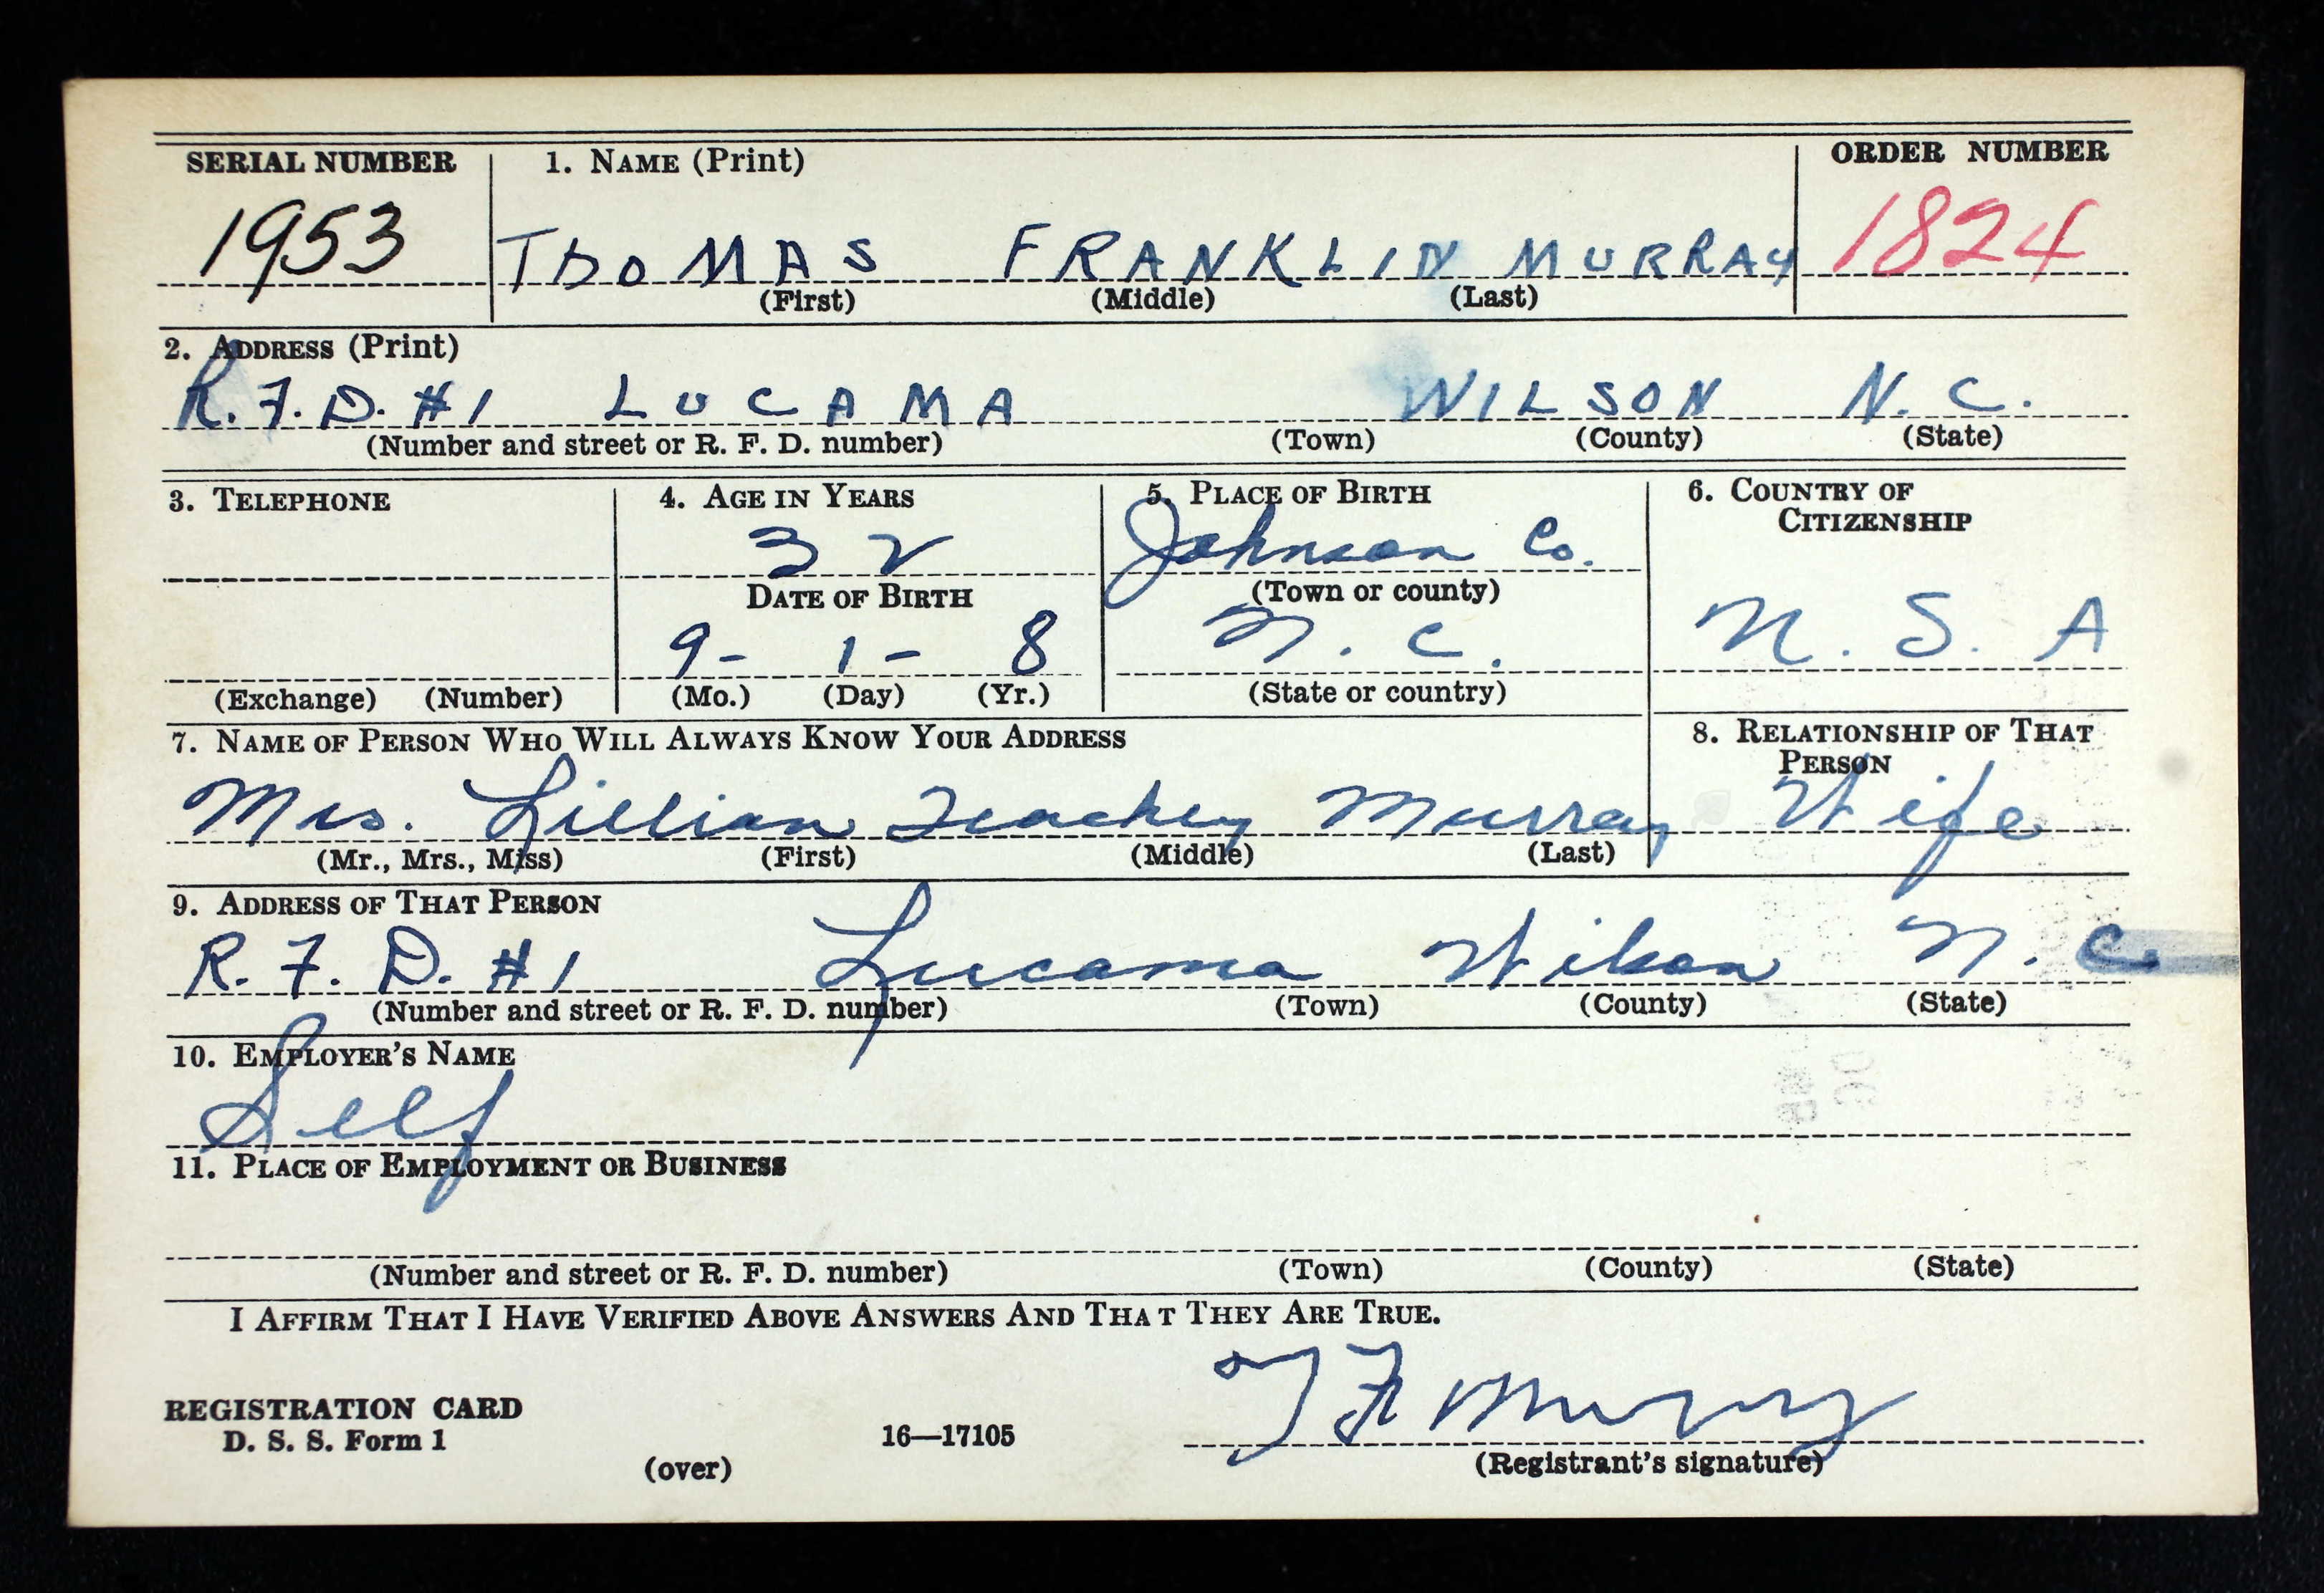 SERIAL NUMBER 1. NAME (Print) ORDER NUMBER
1953 THOMAS FRANKLIN MURRAY 1824
(First) (Middle) (Last)
2. ADDRESS (Print)
R.F.D. #1 LUCAMA WILSON N.C.
(Number and street or R. F. D. number) (Town) (County) (State)
3. TELEPHONE 4. AGE IN YEARS 5. PLACE OF BIRTH 6. COUNTRY OF CITIZENSHIP
32 Johnson Co.
DATE OF BIRTH (Town or county)
9- 1- 8 N.C. U.S.A
(Exchange) (Number) (Mo.) (Day) (Yr.) (State or country)
7. NAME OF PERSON WHO WILL ALWAYS KNOW YOUR ADDRESS 8. RELATIONSHIP OF THAT PERSON
Mrs. Lillian Teachey Murray Wife
(Mr., Mrs., Miss) (First) (Middle) (Last)
9. ADDRESS OF THAT PERSON
R.F.D. #1 Lucama Wilson N.C.
(Number and street or R. F. D. number) (Town) (County) (State)
10. EMPLOYER'S NAME
Self
11. PLACE OF EMPLOYMENT OR BUSINESS
(Number and street or R. F. D. number) (Town) (County) (State)
I AFFIRM THAT I HAVE VERIFIED ABOVE ANSWERS AND THAT THEY ARE TRUE.
T F Murray
REGISTRATION CARD
D. S. S. Form 1 16—17105 (Registrant's signature)
(over)